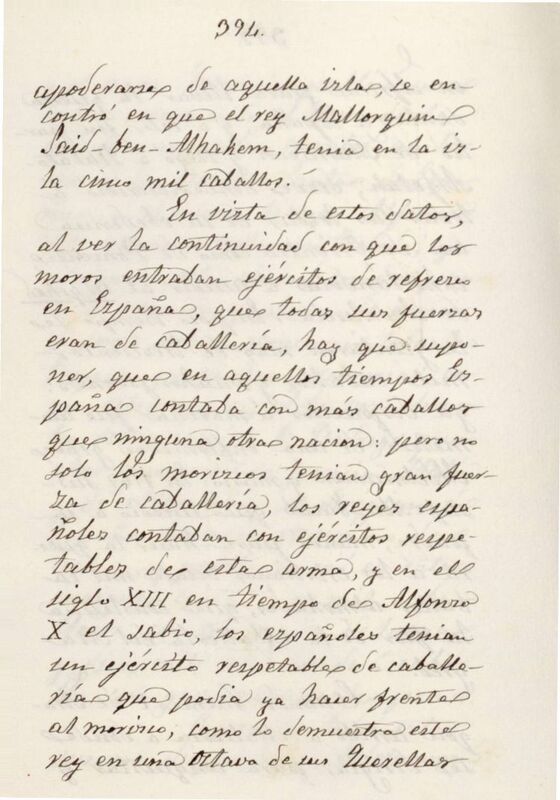 394.
apoderarse de aquella isla, se en-
contró en que el rey Mallorquin
Said-ben-Alhakem, tenia en la is-
la cinco mil caballos.
En vista de estos datos,
al ver la continuidad con que los
moros entraban ejércitos de refresco
en España, que todas sus fuerzas
eran de caballería, hay que supo-
ner, que en aquellos tiempos Es-
paña contaba con más caballos
que ninguna otra nacion: pero no
solo los moriscos tenian gran fuer-
za de caballería, los reyes espa-
ñoles contaban con ejércitos respe-
tables de esta arma, y en el
siglo XIII en tiempo de Alfonso
X el sabio, los españoles tenian
un ejército respetable de caballe-
ría que podia ya hacer frente
al morisco, como lo demuestra este
rey en una octava de sus Querellas